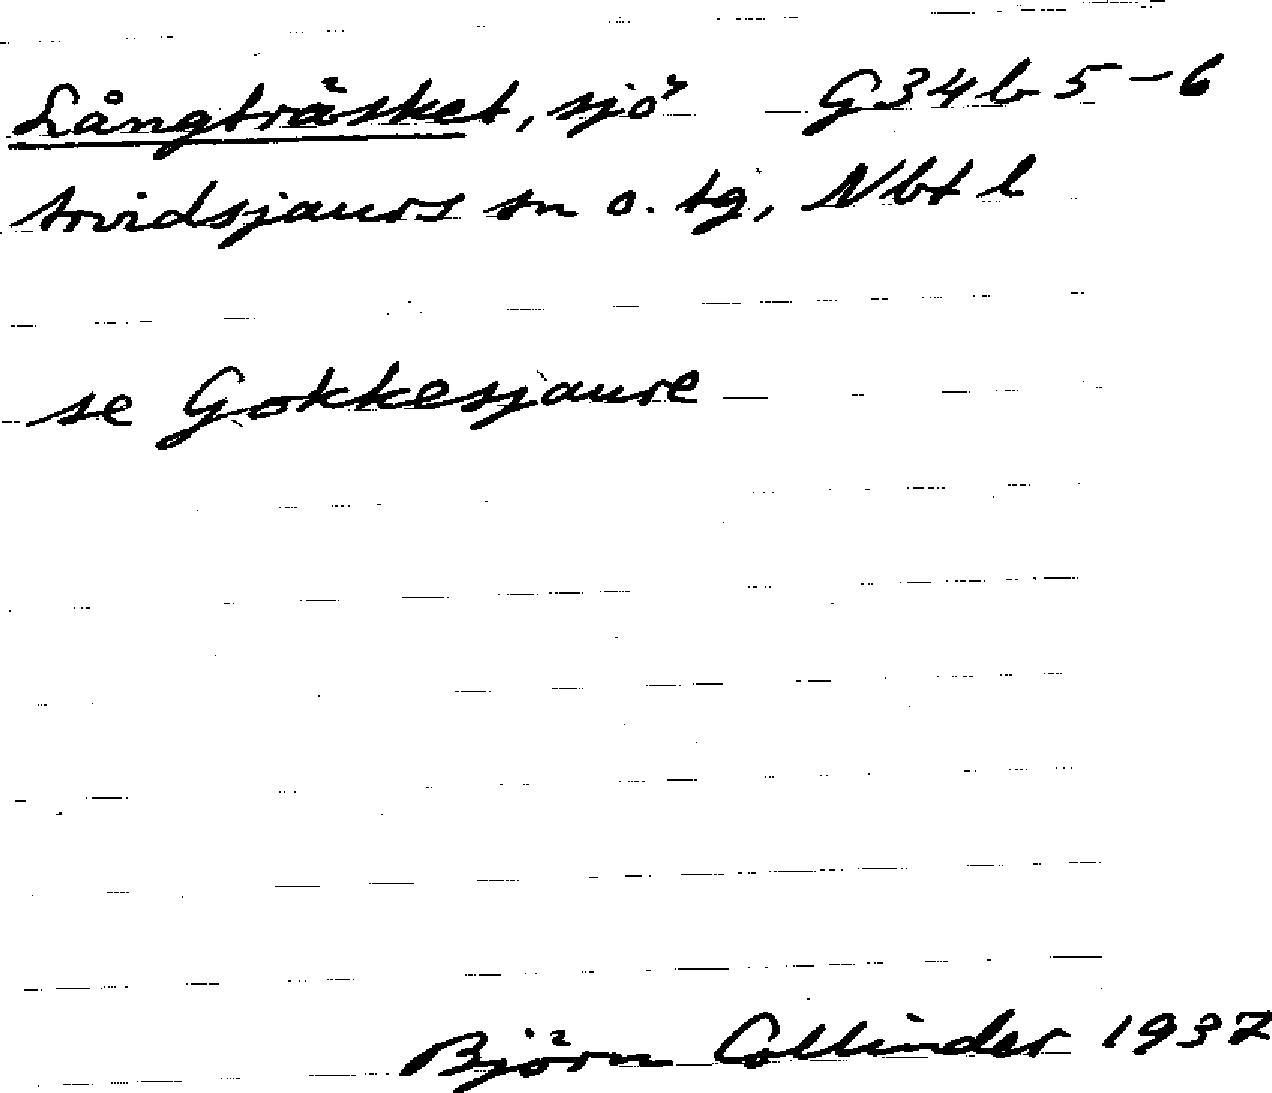 Långträsket, sjö G34b 5-6
Arvidsjaurs sn o. tg, Nbt l
se Gokkesjaure
Björn Collinder 1937